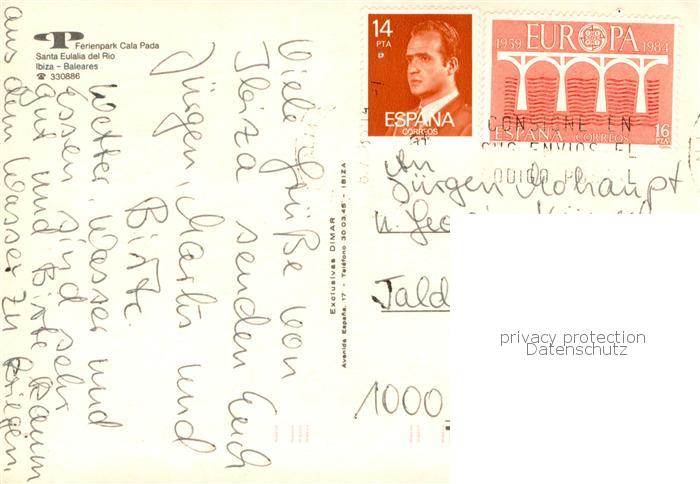 Ferienpark Cala Pada
Santa Eulalia del Rio
Ibiza – Baleares
☎ 330886
Viele Grüße von
Ibiza senden Euch
Jürgen, Marlis und
Birte.
Wetter, Wasser und
Essen sind sehr
gut und Birte kaum
aus dem Wasser zu kriegen.
Exclusivas DIMAR
Avenida España, 17 - Teléfono 30 03 45 - IBIZA
14
PTA
ESPAÑA
CORREOS
1959 EUROPA 1984
ESPAÑA CORREOS 16
PTA
CONSIGNE EN
SUS ENVIOS EL
An
Jürgen Mohaupt
u.
1000
privacy protection
Datenschutz